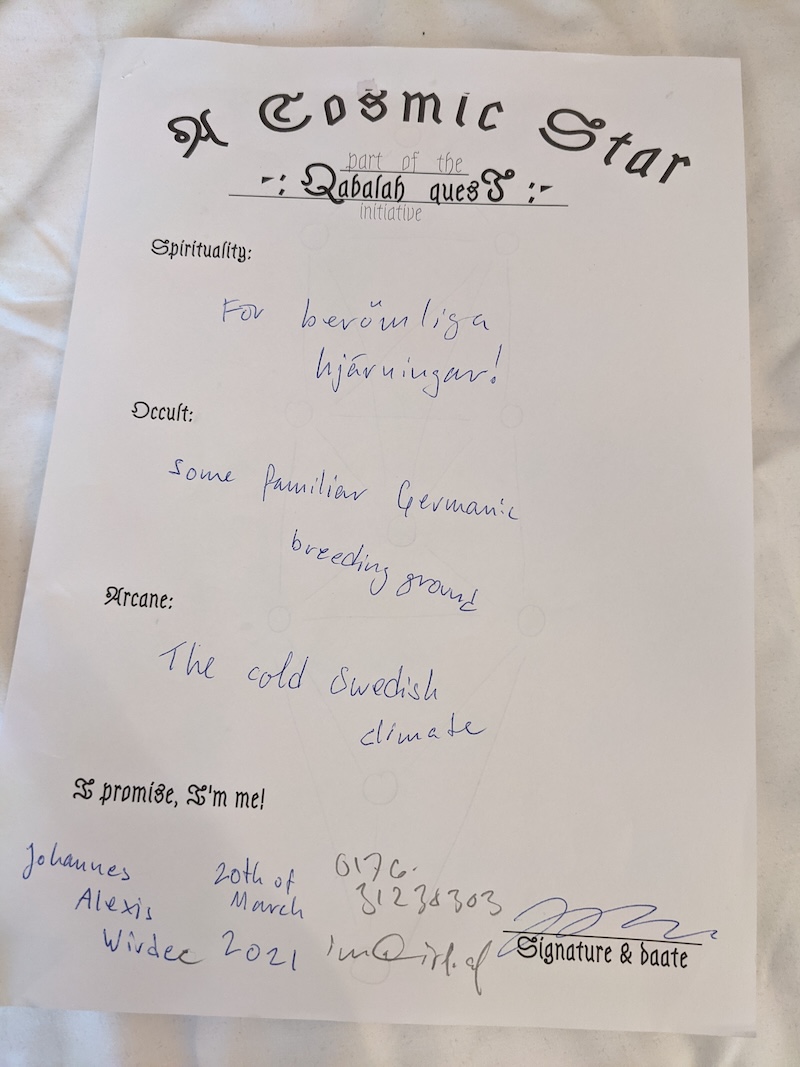 A Cosmic Star
part of the
-: Qabalah quesT :-
initiative
Spirituality:
För berömliga
hjärningar!
Occult:
Some familiar Germanic
breeding ground
Arcane:
The cold Swedish
climate
I promise, I'm me!
Johannes
Alexis
20th of
March
2021
0176.
31238303
Signature & daate